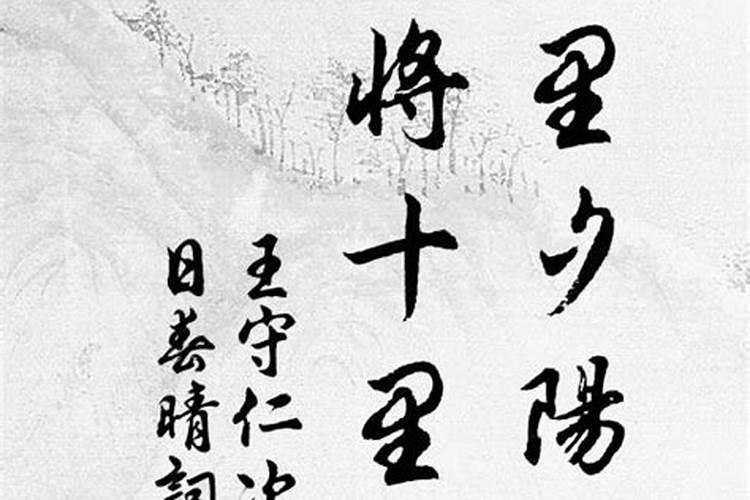 里夕陽
將十里
王守仁次
日春晴詞